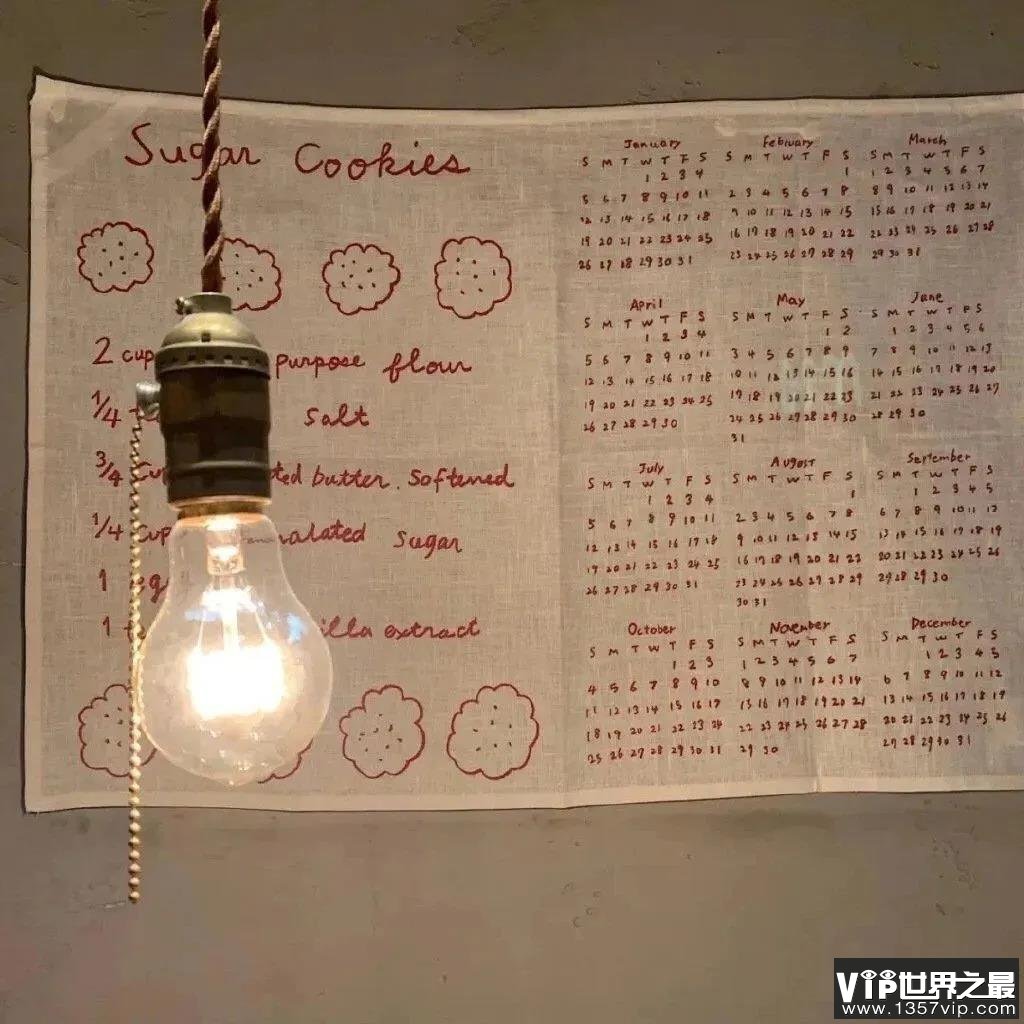 Sugar Cookies
2 cup purpose flour
1/4 salt
3/4 cup ted butter. softened
1/4 cup nalated sugar
1
1 illa extract
January
S M T W T F S
1 2 3 4
5 6 7 8 9 10 11
12 13 14 15 16 17 18
19 20 21 22 23 24 25
26 27 18 29 30 31
February
S M T W T F S
1
2 3 4 5 6 7 8
9 10 11 12 13 14 15
16 17 18 19 20 21 22
23 24 25 26 27 28 29
March
S M T W T F S
1 2 3 4 5 6 7
8 9 10 11 12 13 14
15 16 17 18 19 20 21
22 23 24 25 26 27 28
29 30 31
April
S M T W T F S
1 2 3 4
5 6 7 8 9 10 11
12 13 14 15 16 17 18
19 20 21 22 23 24 25
26 27 28 29 30
May
S M T W T F S
1 2
3 4 5 6 7 8 9
10 11 12 13 14 15 16
17 18 19 20 21 22 23
24 25 26 27 28 29 30
31
June
S M T W T F S
1 2 3 4 5 6
7 8 9 10 11 12 13
14 15 16 17 18 19 20
21 22 23 24 25 26 27
28 29 30
July
S M T W T F S
1 2 3 4
5 6 7 8 9 10 11
12 13 14 15 16 17 18
19 20 21 22 23 24 25
26 27 28 29 30 31
August
S M T W T F S
1
2 3 4 5 6 7 8
9 10 11 12 13 14 15
16 17 18 19 20 21 22
23 24 25 26 27 28 29
30 31
September
S M T W T F S
1 2 3 4 5
6 7 8 9 10 11 12
13 14 15 16 17 18 19
20 21 22 23 24 25 26
27 28 29 30
October
S M T W T F S
1 2 3
4 5 6 7 8 9 10
11 12 13 14 15 16 17
18 19 20 21 22 23 24
25 26 27 28 29 30 31
November
S M T W T F S
1 2 3 4 5 6 7
8 9 10 11 12 13 14
15 16 17 18 19 20 21
22 23 24 25 26 27 28
29 30
December
S M T W T F S
1 2 3 4 5
6 7 8 9 10 11 12
13 14 15 16 17 18 19
20 21 22 23 24 25 26
27 28 29 30 31
VIP世界之最
www.1357vip.com